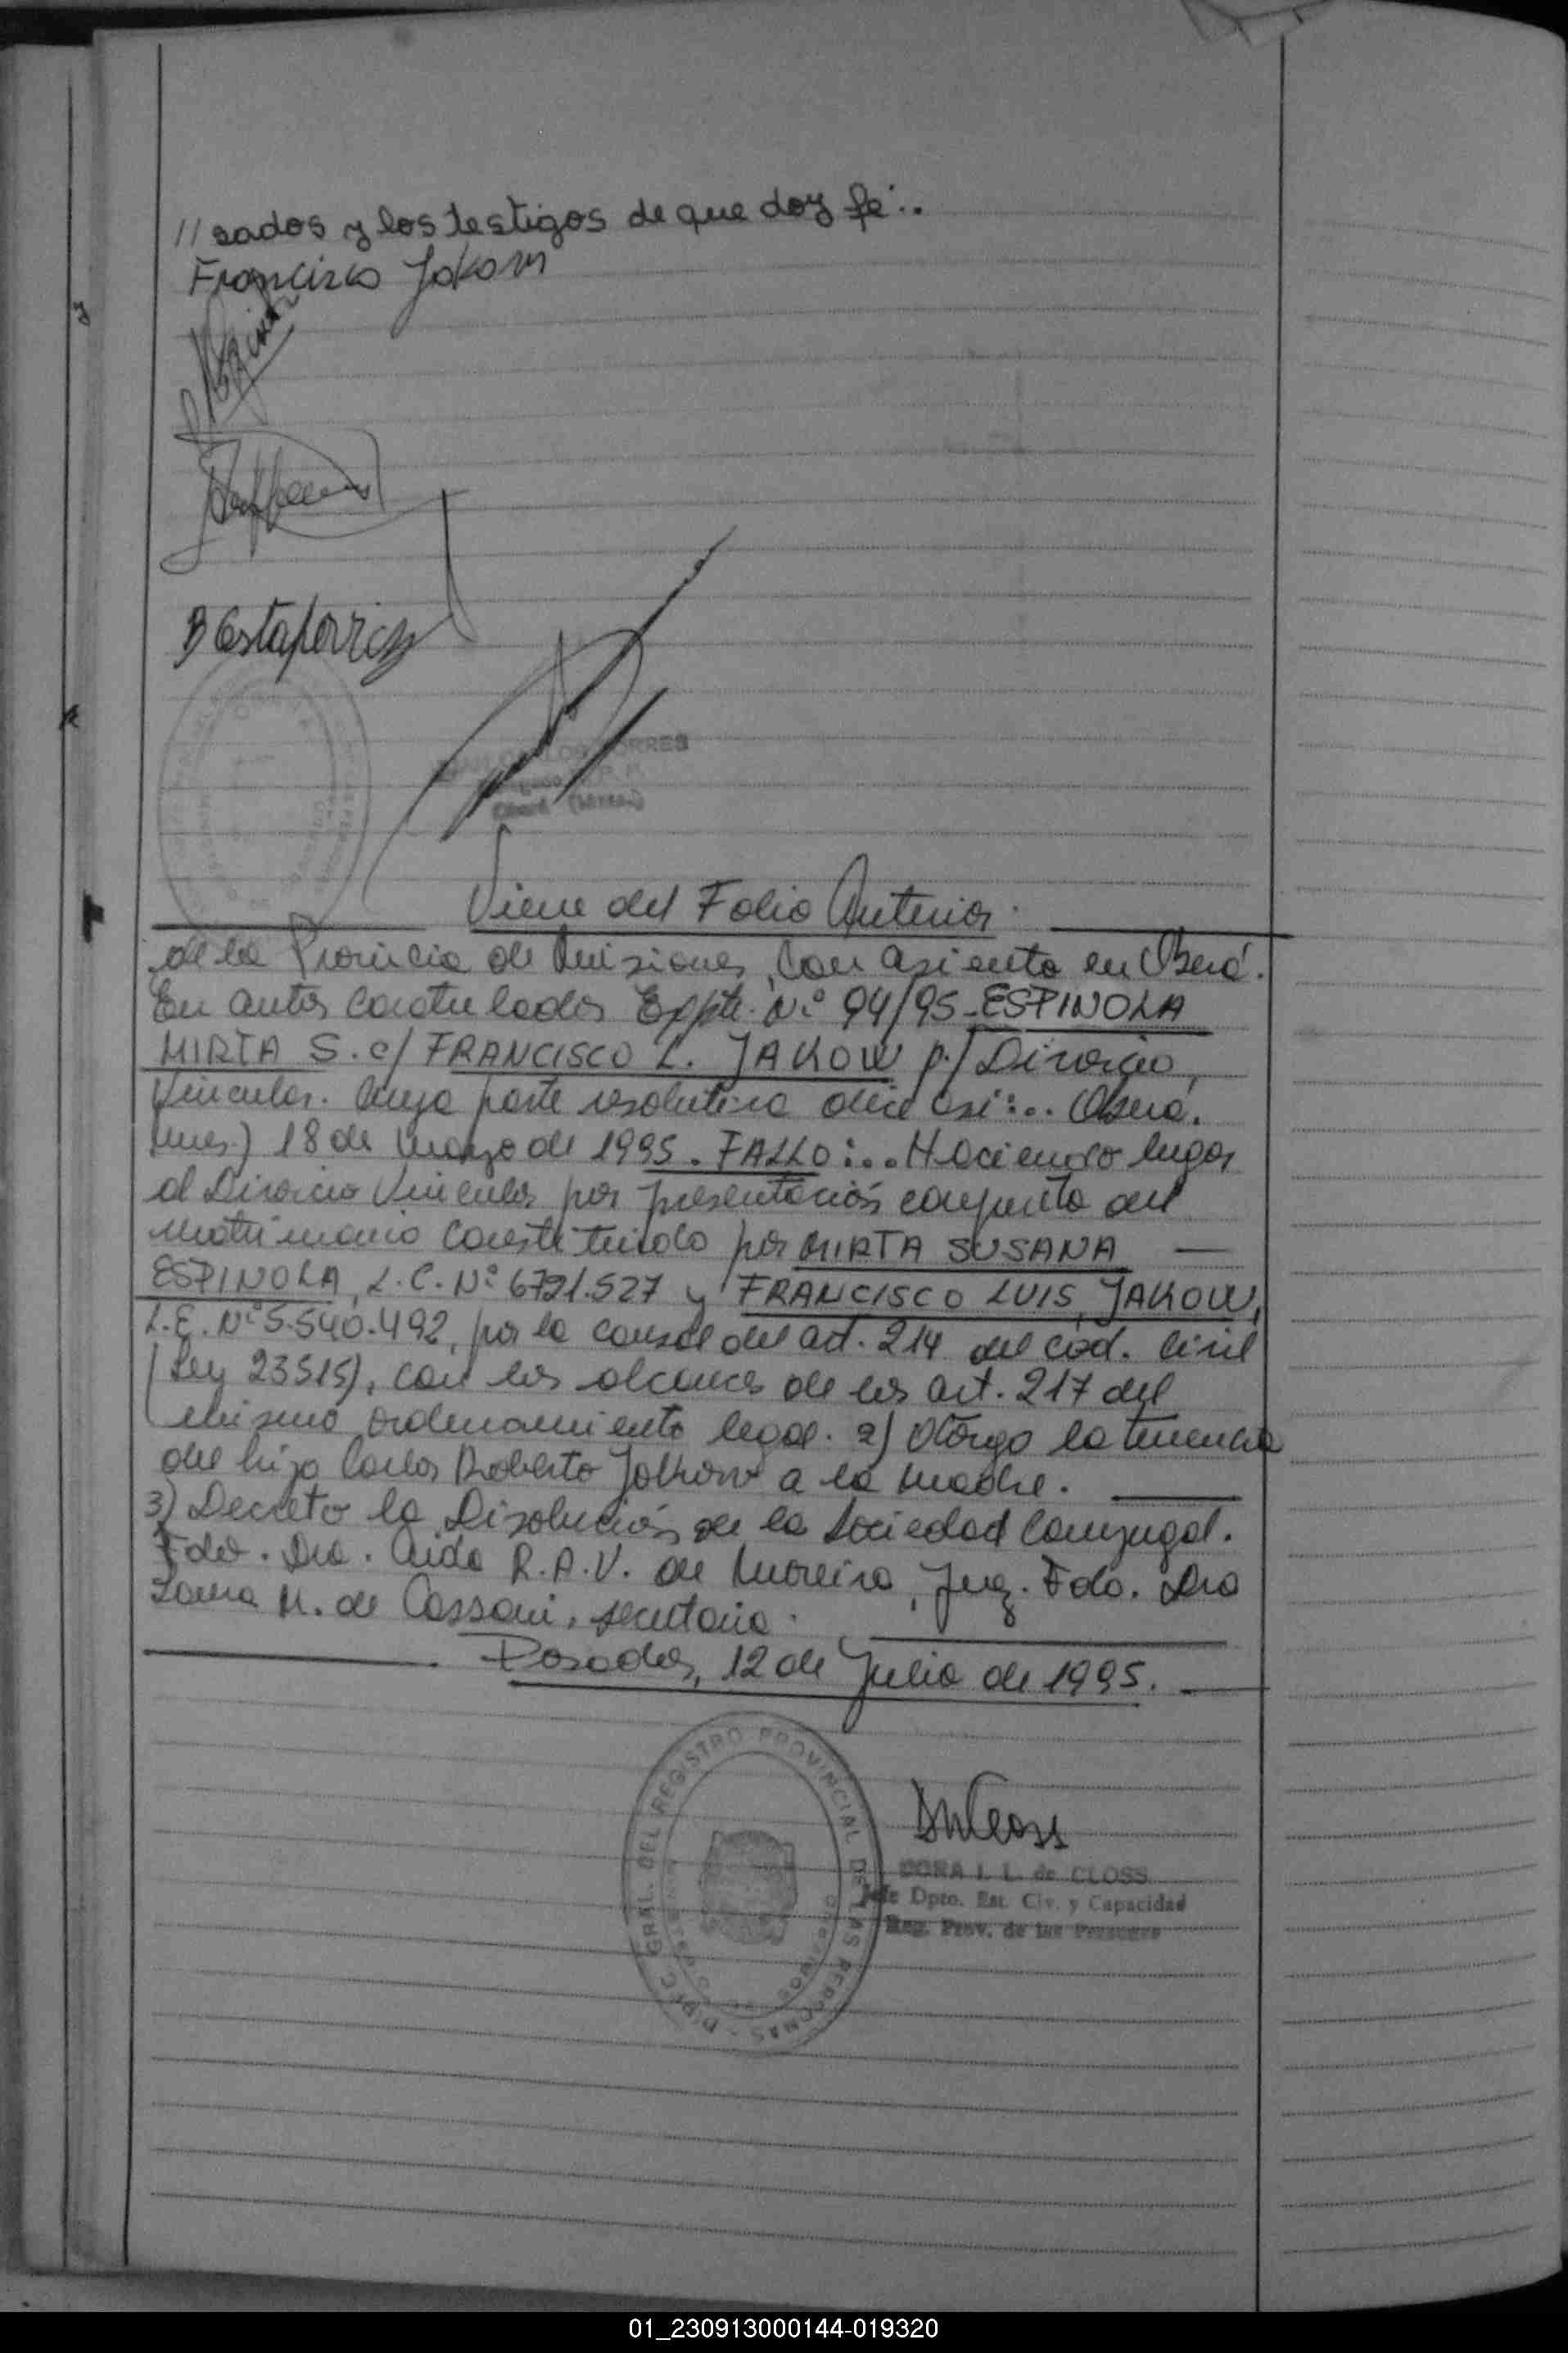 // sados y los testigos de que doy fe:..
Francisco Jakow
B Ostapovicz
CARLOS TORRES
Oberá (Mnes.)
Viene del Folio Anterior.
de la Provincia de Misiones, Con asiento en Oberá.
En autos Caratulados Expte. Nº 94/95 - ESPINOLA
MIRTA S. c/ FRANCISCO L. JAKOW p/ Divorcio,
Vincular. Cuya parte resolutiva dice así:.. Oberá.
Mnes.) 18 de Marzo de 1995. FALLO:.. Haciendo lugar
al Divorcio Vincular por presentación conjunta del
Matrimonio Constituido por MIRTA SUSANA
ESPINOLA, L.C. Nº 6721.527 y FRANCISCO LUIS JAKOW,
L.E. Nº 5.540.492, por la causal del art. 214 del cod. Civil
(Ley 23515), con los alcances de los art. 217 del
mismo ordenamiento legal. 2) Otorgo la tenencia
del hijo Carlos Roberto Jakow a la Madre.
3) Decreto la Disolución de la Sociedad Conyugal.
Fdo. Dra. Aida R.A.V. de Moreira, Juez. Fdo. Dra
M. de Cassoni, secretaria.
Posadas, 12 de Julio de 1995.
DIREC. GRAL. DEL REGISTRO PROVINCIAL DE LAS PERSONAS
CORA I. L. de CLOSS
Jefe Dpto. Est. Civ. y Capacidad
Reg. Prov. de las Personas
01_230913000144-019320